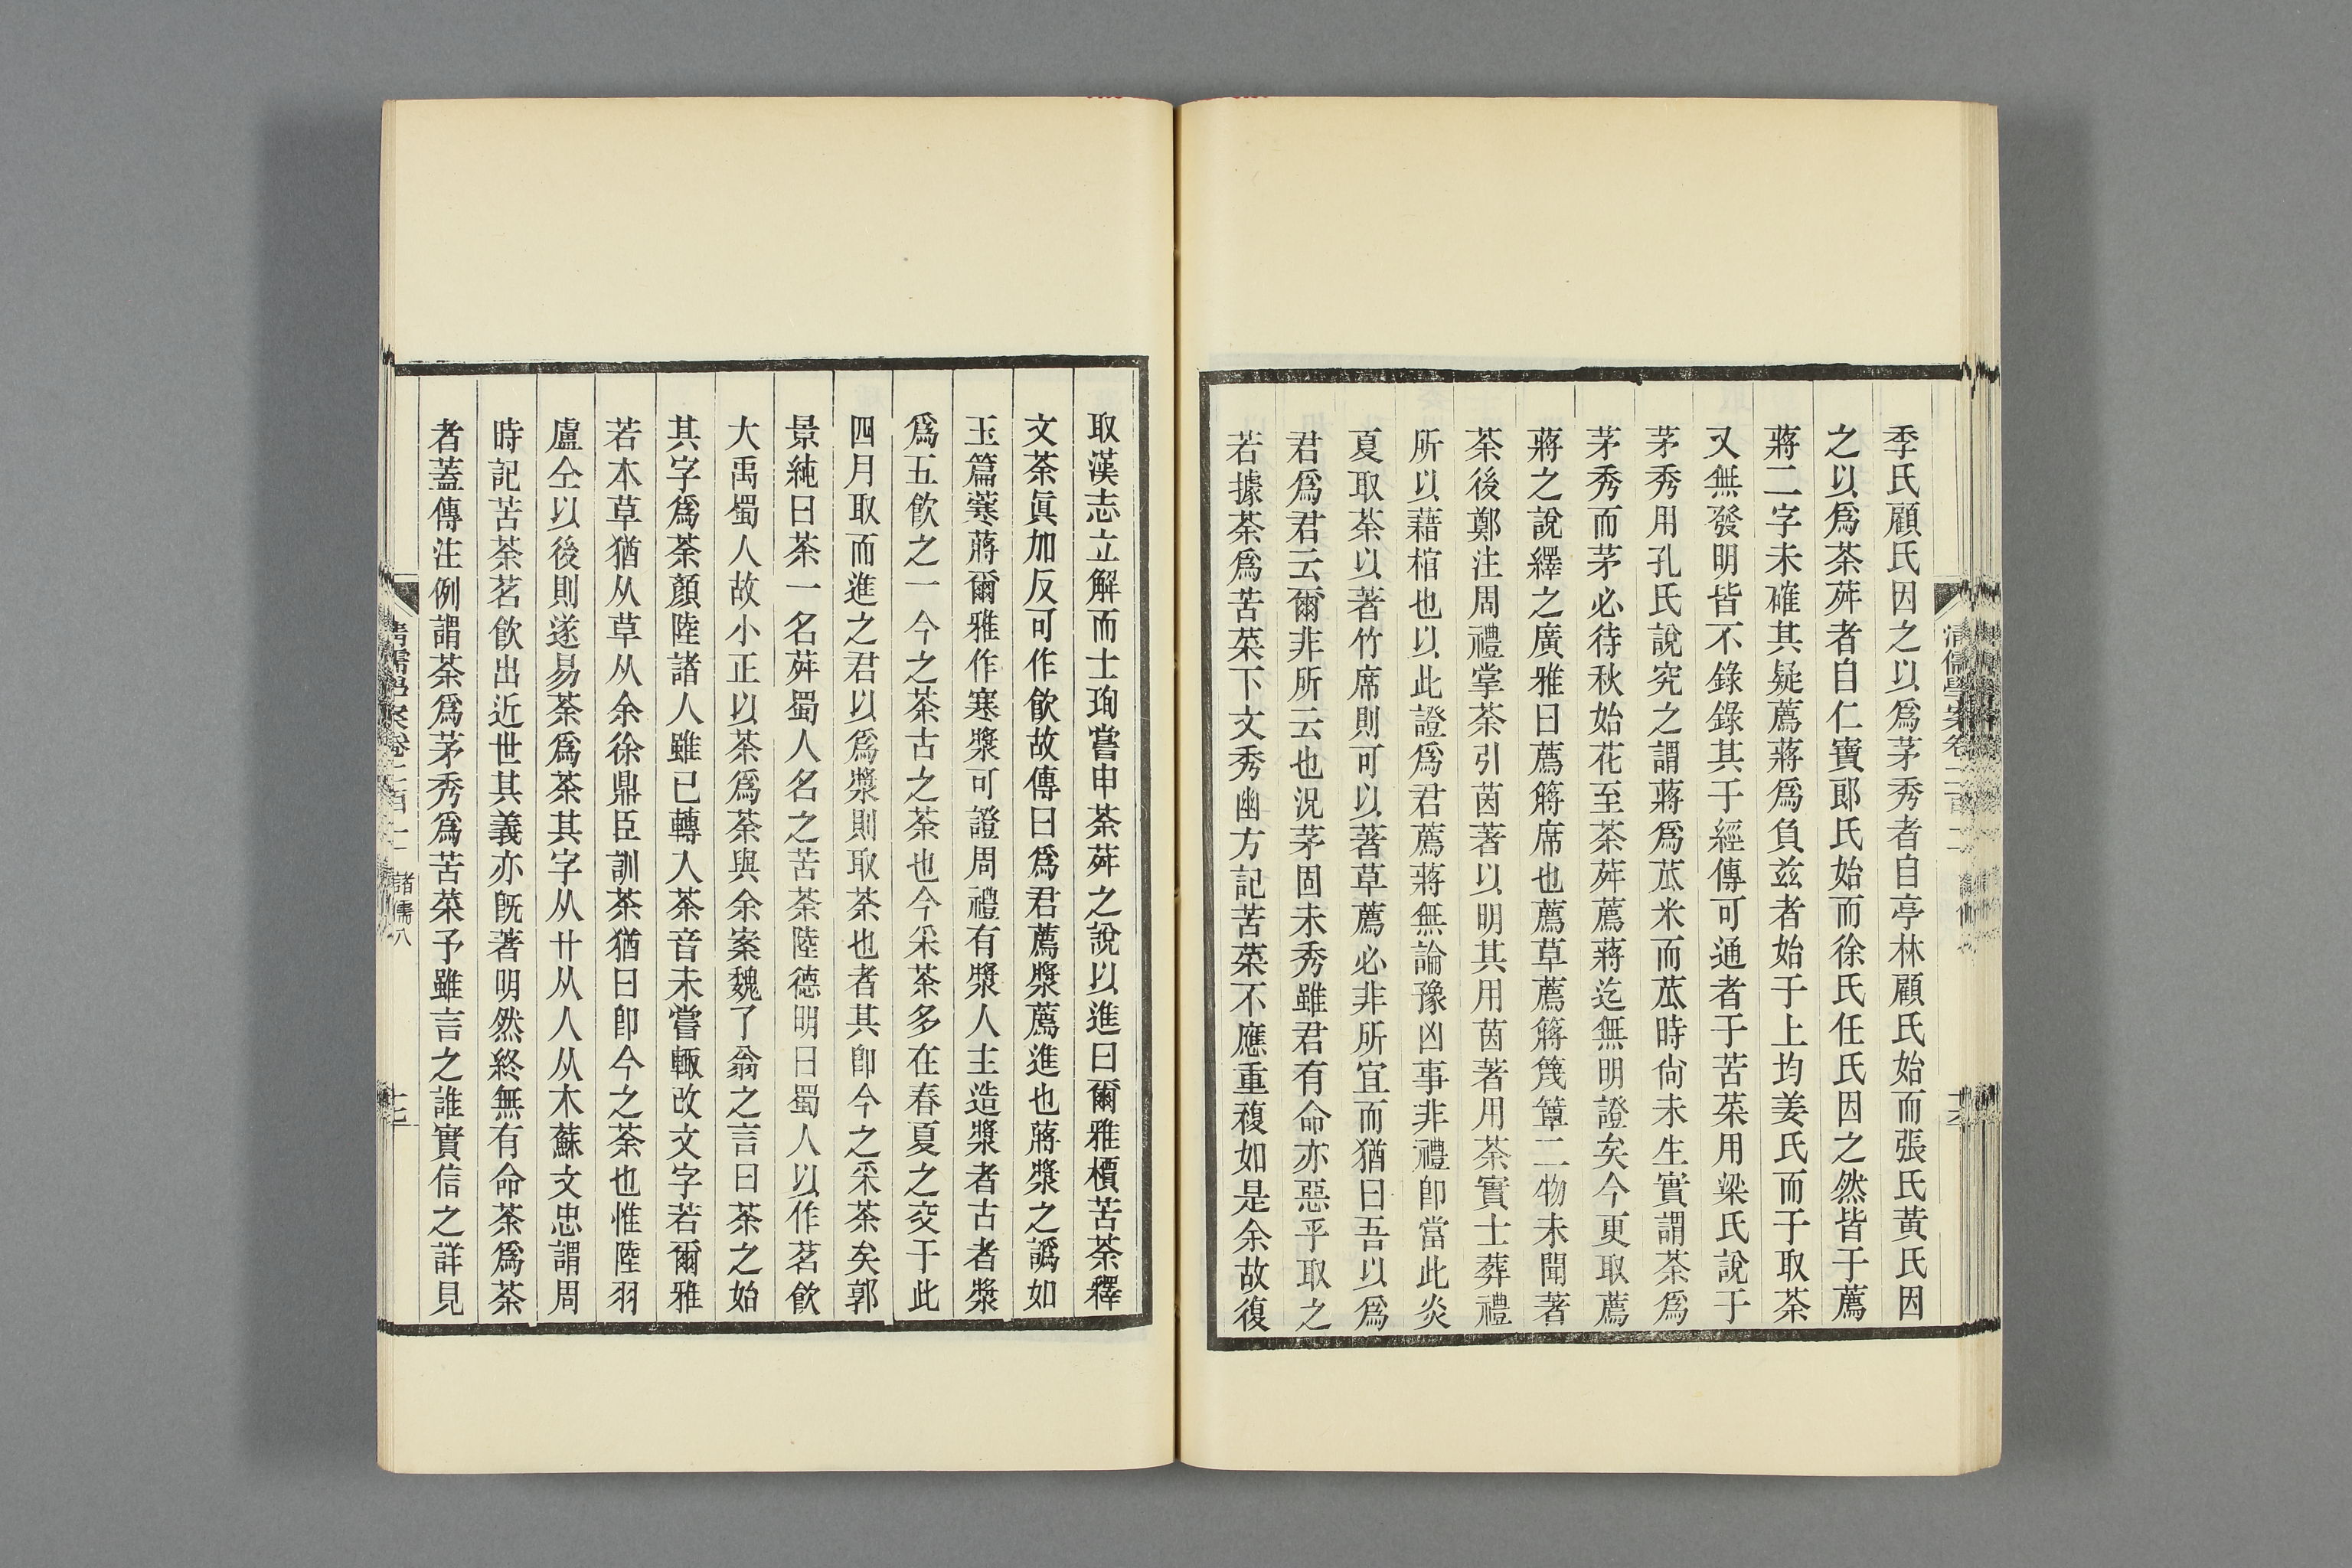 季氏顧氏因之以爲茅秀者自亭林顧氏始而張氏黃氏因
之以爲荼荈者自仁寶郎氏始而徐氏任氏因之然皆于薦
蔣二字未確其疑薦蔣爲負兹者始于上均姜氏而于取荼
又無發明皆不錄錄其于經傳可通者于苦菜用梁氏說于
茅秀用孔氏說究之謂蔣爲苽米而苽時尙未生實謂荼爲
茅秀而茅必待秋始花至荼荈薦蔣迄無明證矣今更取薦
蔣之說繹之廣雅曰薦簩席也薦草薦簩篾簟二物未聞著
荼後鄭注周禮掌荼引茵著以明其用茵著用荼實士葬禮
所以藉棺也以此證爲君薦蔣無論豫凶事非禮卽當此炎
夏取荼以著竹席則可以著草薦必非所宜而猶曰吾以爲
君爲君云爾非所云也況茅固未秀雖君有命亦惡乎取之
若據荼爲苦菜下文秀幽方記苦菜不應重複如是余故復
清儒學案卷二百二
取漢志立解而士珣嘗申荼荈之說以進曰爾雅檟苦荼釋
文荼眞加反可作飮故傳曰爲君薦漿薦進也蔣漿之譌如
玉篇䔳蔣爾雅作寒漿可證周禮有漿人主造漿者古者漿
爲五飮之一今之茶古之荼也今采茶多在春夏之交于此
四月取而進之君以爲漿則取荼也者其卽今之采茶矣郭
景純曰荼一名荈蜀人名之苦荼陸德明曰蜀人以作茗飮
大禹蜀人故小正以荼爲荼與余案魏了翁之言曰茶之始
其字爲荼顏陸諸人雖已轉入茶音未嘗輒改文字若爾雅
若本草猶从草从余徐鼎臣訓荼猶曰卽今之茶也惟陸羽
盧仝以後則遂易荼爲茶其字从艸从人从木蘇文忠謂周
時記苦荼茗飮出近世其義亦旣著明然終無有命荼爲茶
者蓋傳注例謂荼爲茅秀爲苦菜予雖言之誰實信之詳見
清儒學案卷二百二　諸儒八　十七